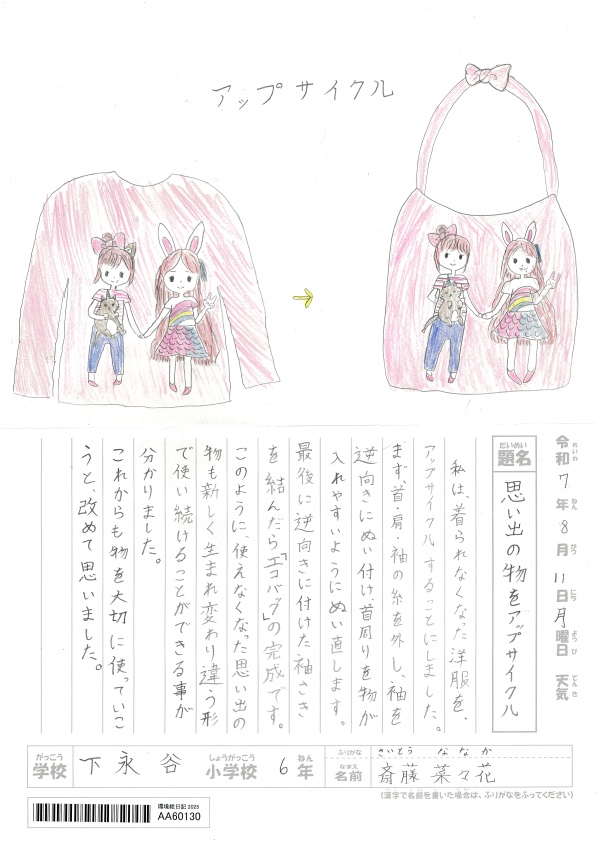 アップサイクル
令和7年8月11日月曜日 天気
れいわ ねん がつ にち ようび てんき
だいめい
題名
思い出の物をアップサイクル
私は、着られなくなった洋服を、
アップサイクルすることにしました。
まず、首・肩・袖の糸を外し、袖を
逆向きにぬい付け、首周りを物が
入れやすいようにぬい直します。
最後に逆向きに付けた袖さき
を結んだら「エコバッグ」の完成です。
このように、使えなくなった思い出の
物も新しく生まれ変わり違う形
で使い続けることができる事が
分かりました。
これからも物を大切に使っていこ
うと、改めて思いました。
がっこう
学校
下永谷
しょうがっこう
小学校
6
ねん
年
ふりがな
さいとう ななか
なまえ
名前
斎藤 菜々花
(漢字で名前を書いた場合は、ふりがなをふってください)
環境絵日記 2025
AA60130